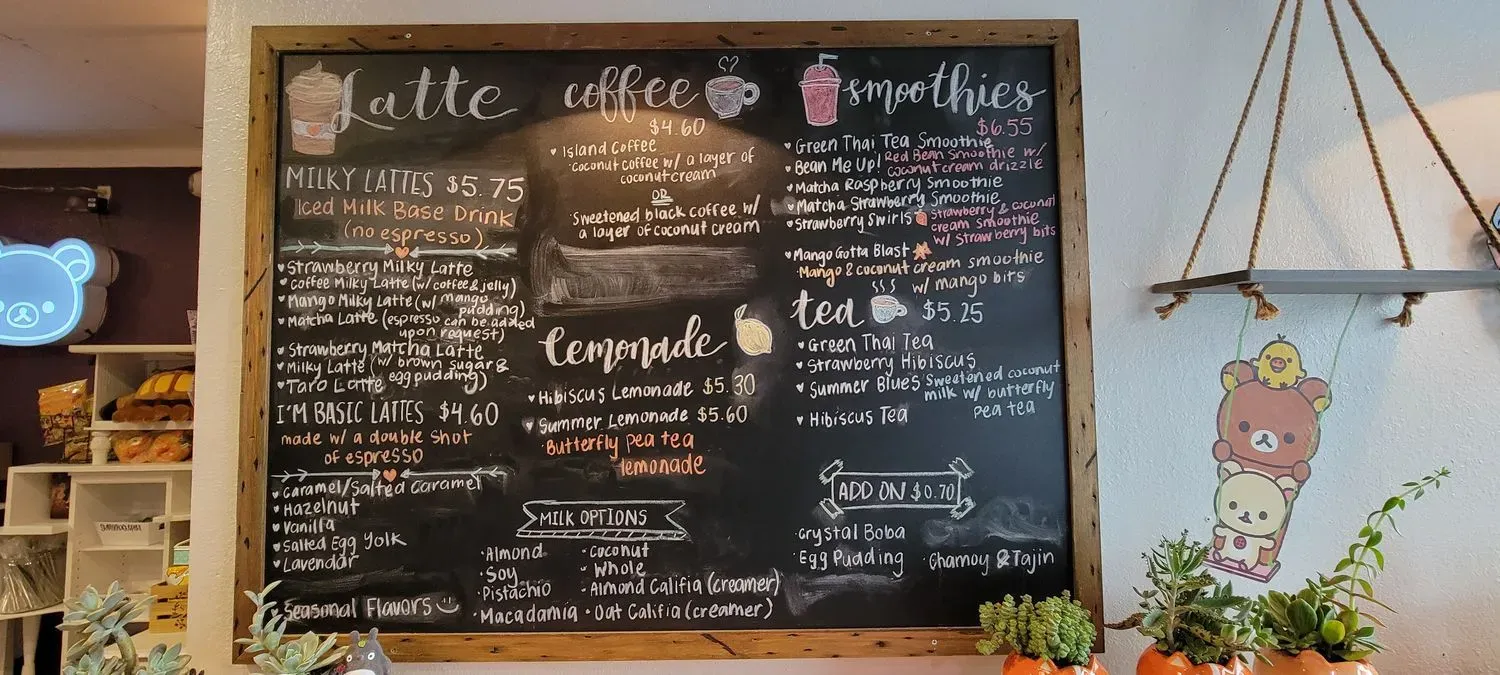 Latte
MILKY LATTES $5.75
Iced Milk Base Drink
(no espresso)
Strawberry Milky Latte
Coffee Milky Latte (w/ coffee jelly)
Mango Milky Latte (w/ mango
pudding)
Matcha Latte (espresso can be added
upon request)
Strawberry Matcha Latte
Milky Latte (w/ brown sugar &
egg pudding)
Taro Latte
I'M BASIC LATTES $4.60
made w/ a double shot
of espresso
Caramel/Salted Caramel
Hazelnut
Vanilla
Salted Egg Yolk
Lavendar
Seasonal Flavors
coffee
$4.60
Island Coffee
coconut coffee w/ a layer of
coconut cream
OR
Sweetened black coffee w/
a layer of coconut cream
Lemonade
Hibiscus Lemonade $5.30
Summer Lemonade $5.60
Butterfly pea tea
lemonade
MILK OPTIONS
·Almond
·Soy
·Pistachio
·Macadamia
·Coconut
·Whole
·Almond Califia (creamer)
·Oat Califia (creamer)
smoothies
$6.55
Green Thai Tea Smoothie
Bean Me Up! Red Bean Smoothie w/
coconut cream drizzle
Matcha Raspberry Smoothie
Matcha Strawberry Smoothie
Strawberry Swirls Strawberry & coconut
cream smoothie
w/ Strawberry bits
Mango Gotta Blast
·Mango & coconut cream smoothie
w/ mango bits
tea $5.25
Green Thai Tea
Strawberry Hibiscus
Summer Blues Sweetened coconut
milk w/ butterfly
pea tea
Hibiscus Tea
ADD ON $0.70
Crystal Boba
·Egg Pudding
·Chamoy & Tajin